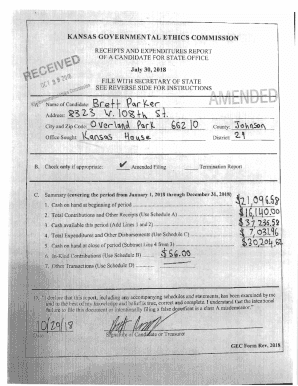 KANSAS GOVERNMENTAL ETHICS COMMISSION
RECEIPTS AND EXPENDITURES REPORT
OF A CANDIDATE FOR STATE OFFICE
July 30, 2018
FILE WITH SECRETARY OF STATE
SEE REVERSE SIDE FOR INSTRUCTIONS
RECEIVED
OCT 2018
AMENDED
A. Name of Candidate: Brett Parker
Address: 8323 W. 108th St.
City and Zip Code: Overland Park 66210 County: Johnson
Office Sought: Kansas House District: 29
B. Check only if appropriate: ✓ Amended Filing Termination Report
C. Summary (covering the period from January 1, 2018 through December 31, 2018)
1. Cash on hand at beginning of period $21,096.58
2. Total Contributions and Other Receipts (Use Schedule A) $16,140.00
3. Cash available this period (Add Lines 1 and 2) $37,236.58
4. Total Expenditures and Other Disbursements (Use Schedule C) $7,031.96
5. Cash on hand at close of period (Subtract Line 4 from 3) $30,204.62
6. In-Kind Contributions (Use Schedule B) $56.00
7. Other Transactions (Use Schedule D)
declare that this report, including any accompanying schedules and statements, has been examined by me
and to the best of my knowledge and belief is true, correct and complete. I understand that the intentional
failure to file this document or intentionally filing a false document is a class A misdemeanor."
10/29/18
Signature of Candidate or Treasurer
GEC Form Rev. 2018